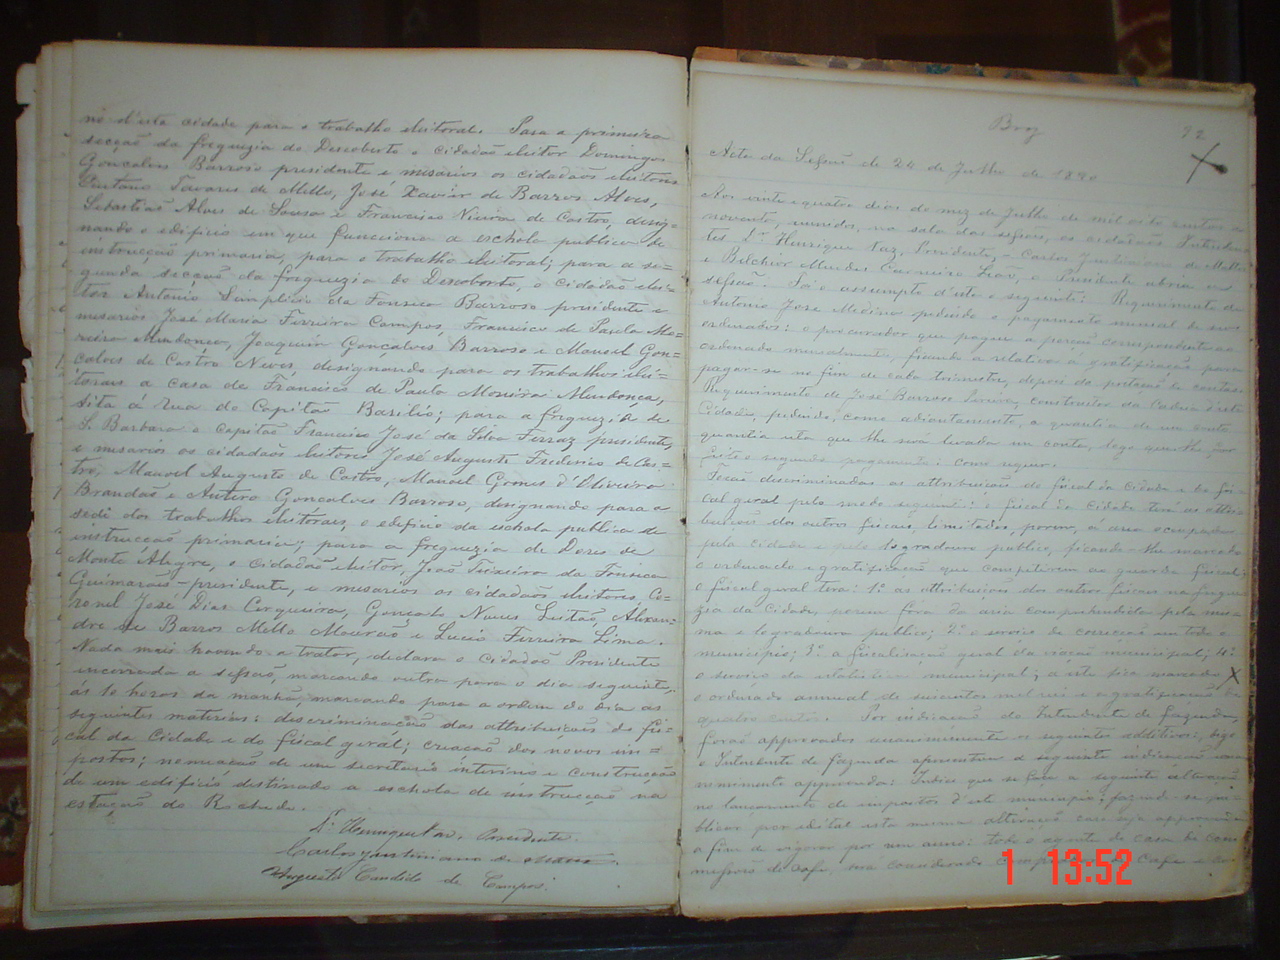 no d'esta cidade para o trabalho eleitoral. Para a primeira
secção da freguezia do Descoberto o cidadão eleitor Domingos
Gonçalves Barroso presidente e mesarios os cidadãos eleitores
Caetano Tavares de Mello, José Xavier de Barros Alves,
Sebastião Alves de Sousa e Francisco Vieira de Castro, desig=
nando o edificio em que funciona a eschola publica de
instrucção primaria, para o trabalho eleitoral; para a se=
gunda secção da freguezia do Descoberto, o cidadão elei=
tor Antonio Simplicio da Fonseca Barroso presidente e
mesarios José Maria Ferreira Campos, Francisco de Paula Mo=
reira Mendonca, Joaquim Gonçalves Barroso e Manoel Gon=
calves de Castro Neves, designando para os trabalhos elei=
toraes a casa de Francisco de Paula Moreira Mendonça,
sita á rua do Capitão Basilio; para a freguezia de
S. Barbara o Capitão Francisco José da Silva Ferraz presidente,
e mesarios os cidadãos eleitores José Augusto Frederico de Cas=
tro, Manoel Augusto de Castro, Manoel Gomes d'Oliveira
Brandão e Antero Goncalves Barroso, designando para a
sede dos trabalhos eleitoraes, o edificio da eschola publica de
instrucção primaria, para a freguezia de Dores de
Monte Alegre, o cidadão eleitor, João Teixeira da Fonseca
Guimarães - presidente, e mesarios os cidadãos eleitores, Co=
ronel José Dias Cerqueira, Gonçalo Neves Leitão, Alexan=
dre de Barros Mello Mourão e Lucio Ferreira Lima.
Nada mais havendo a tratar, declara o cidadão Presidente
encerrada a sessão, marcando outra para o dia seguinte,
ás 10 horas da manhã, marcando para a ordem do dia as
seguintes materias: descriminação das attribuições do fis=
cal da Cidade e do fiscal geral; creação dos novos im=
postos; nomeação de um secretario interino e construcção
de um edificio destinado a eschola de instrucção na
estação do Rochedo.
Dr. Henrique Vaz, Presidente.
Carlos Justiniano de Mattos.
Augusto Candido de Campos.
22
Acta da Sessão de 24 de Julho de 1890
Aos vinte e quatro dias do mez de Julho de mil oito centos e
noventa, reunidos, na sala das sessões, os cidadãos Intenden=
tes, Dr. Henrique Vaz, Presidente, - Carlos Justiniano de Mattos
e Belchior Mendes Carneiro Leão, o Presidente abrio a
sessão. Foi o assumpto d'esta o seguinte: Requerimento de
Antonio José Medina pedindo o pagamento mensal de seus
ordenados: o procurador que pague a porção correspondente ao
ordenado mensalmente, ficando a relativa á gratificação para
pagar-se no fim de cada trimestre, depois da prestação de contas.
Requerimento de José Barroso Pereira, constructor da Cadeia d'esta
Cidade, pedindo, como adiantamento, a quantia de um conto,
quantia esta que lhe será levada em conta, logo que lhe for
feito o segundo pagamento: como requer.
Forão descriminadas as attribuições do fiscal da Cidade e do fis=
cal geral pelo modo seguinte: o fiscal da Cidade tem as attri=
buições dos outros fiscaes, limitadas, porem, á area occupada
pela cidade e pelo logradouro publico, ficando-lhe marcado
o ordenado e gratificação que competirem ao guarda fiscal;
o fiscal geral terá: 1.º as attribuições dos outros fiscaes na fregue=
zia da Cidade, porem fora da area comprehendida pela mes=
ma e logradouro publico; 2.º o serviço da correcção em todo o
municipio; 3.º a fiscalisação geral da viação municipal; 4.º
o serviço da municipal; a este fica marcado
o ordenado annual de seiscentos mil reis e a gratificação de
quatro centos. Por indicação do Intendente de fazenda,
forão approvados unanimemente os seguintes additivos: digo
o Intendente de fazenda apresentou a seguinte indicação
approvada: Indico que se faça a seguinte alteração
no lançamento de impostos d'este municipio; fazendo-se pu=
blicar por edital esta mesma alteração caso seja approvada
a fim de vigorar por um anno: todo o agente de casa de com
missões de café, será considerado comprador de Café e
1 13:52